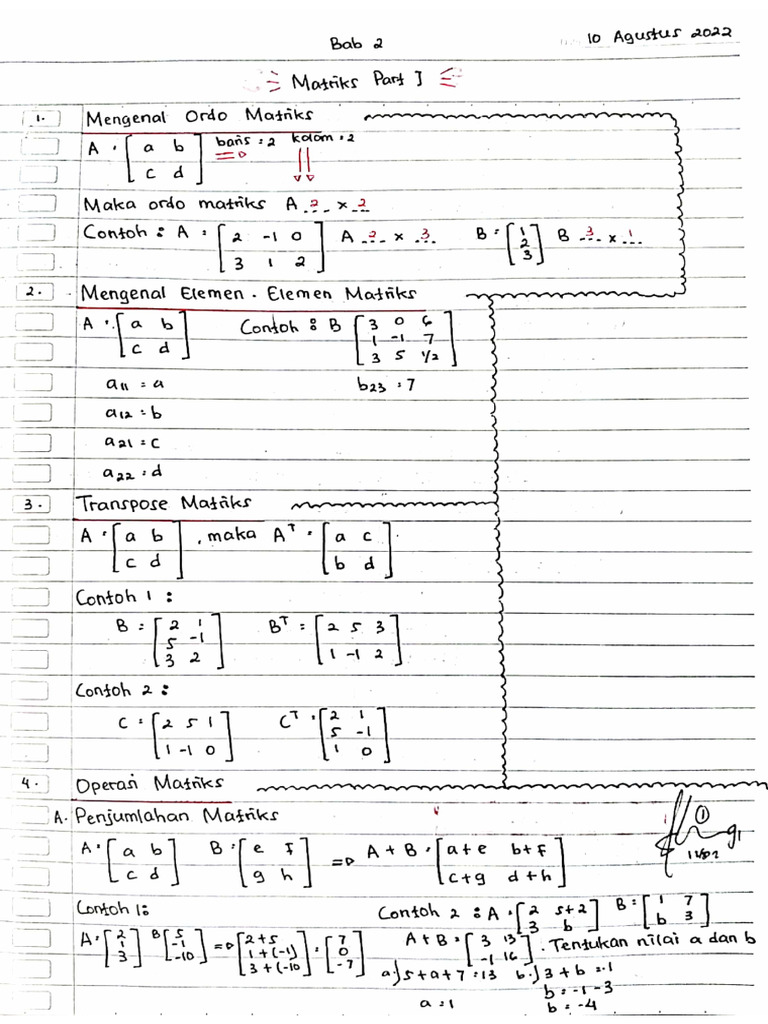 Bab 2
10 Agustus 2022
Matriks Part I
1. Mengenal Ordo Matriks
A = [a b
c d] baris = 2 kolom = 2
Maka ordo matriks A 2 x 2
Contoh : A = [2 -1 0
3 1 2] A 2 x 3 B = [1
2
3] B 3 x 1
2. Mengenal Elemen - Elemen Matriks
A = [a b
c d] Contoh : B [3 0 6
1 -1 7
3 5 1/2]
a11 = a b23 = 7
a12 = b
a21 = c
a22 = d
3. Transpose Matriks
A = [a b
c d], maka A^T = [a c
b d]
Contoh 1 :
B = [2 1
5 -1
3 2] B^T = [2 5 3
1 -1 2]
Contoh 2 :
C = [2 5 1
1 -1 0] C^T = [2 1
5 -1
1 0]
4. Operasi Matriks
A. Penjumlahan Matriks
A = [a b
c d] B = [e f
g h] => A + B = [a+e b+f
c+g d+h]
Contoh 1:
A = [2
1
3] B [5
-1
-10] => [2+5
1+(-1)
3+(-10] = [7
0
-7]
Contoh 2 : A = [2 5+2
3 b] B = [1 7
b 3]
A + B = [3 13
-1 16]. Tentukan nilai a dan b
a.) 5+a+7 = 13 b.) 3 + b = -1
b = -1 - 3
a = 1 b = -4